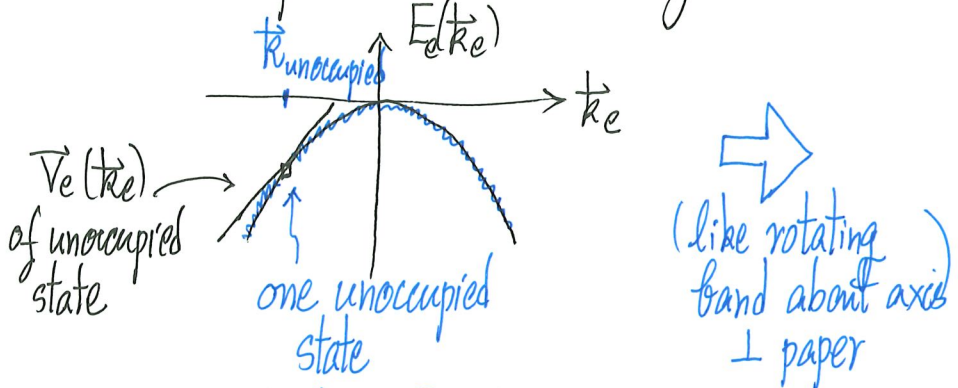 E_e(k⃗_e)
k⃗_unoccupied
k⃗_e
v⃗_e(k⃗_e)
of unoccupied
state
one unoccupied
state
(like rotating
band about axis
⊥ paper)